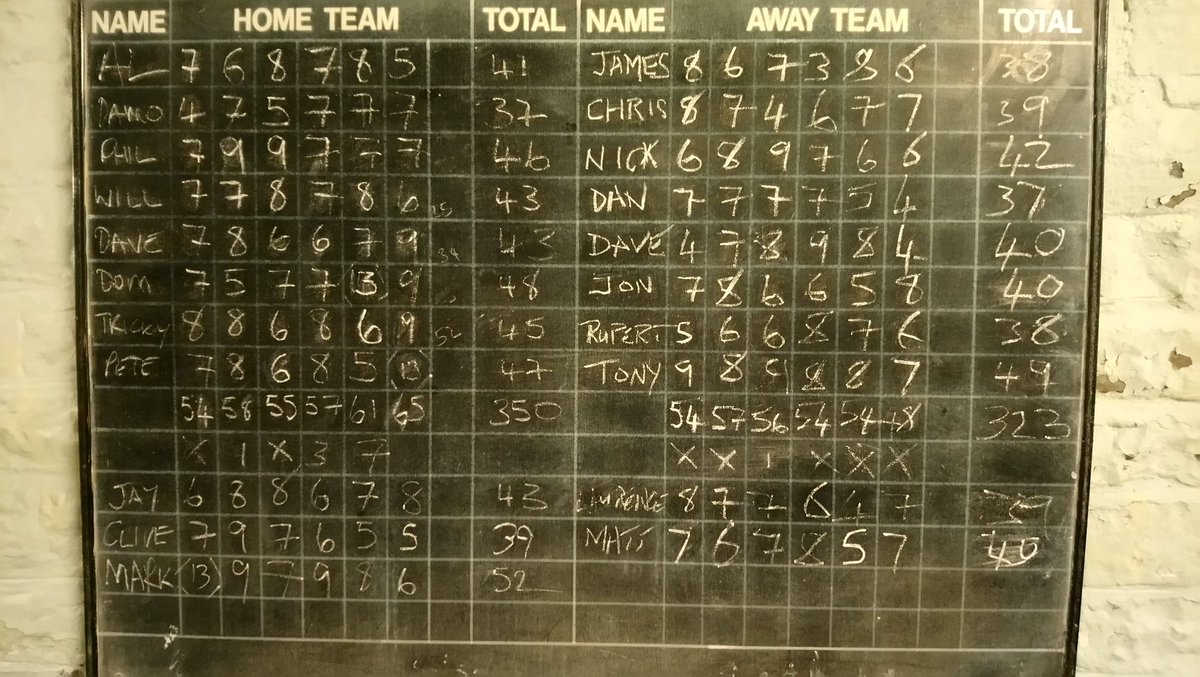 NAME HOME TEAM TOTAL NAME AWAY TEAM TOTAL
AL 7 6 8 7 8 5 41 JAMES 8 6 7 3 8 6 38
DAMO 4 7 5 7 7 7 37 CHRIS 8 7 4 6 7 7 39
PHIL 7 9 9 7 7 7 46 NICK 6 8 9 7 6 6 42
WILL 7 7 8 7 8 6 43 DAN 7 7 7 7 5 4 37
DAVE 7 8 6 6 7 9 43 DAVE 4 7 8 9 8 4 40
DOM 7 5 7 7 (13) 9 48 JON 7 8 6 6 5 8 40
TRICKY 8 8 6 8 6 9 45 RUPERT 5 6 6 8 7 6 38
PETE 7 8 6 8 5 (13) 47 TONY 9 8 9 8 8 7 49
54 58 55 57 61 65 350 54 57 56 54 54 48 323
X 1 X 3 7 X X 1 X X X
JAY 6 8 8 6 7 8 43 LAWRENCE 8 7 7 6 4 7
CLIVE 7 9 7 6 5 5 39 MATT 7 6 7 8 5 7 40
MARK (13) 9 7 9 8 6 52